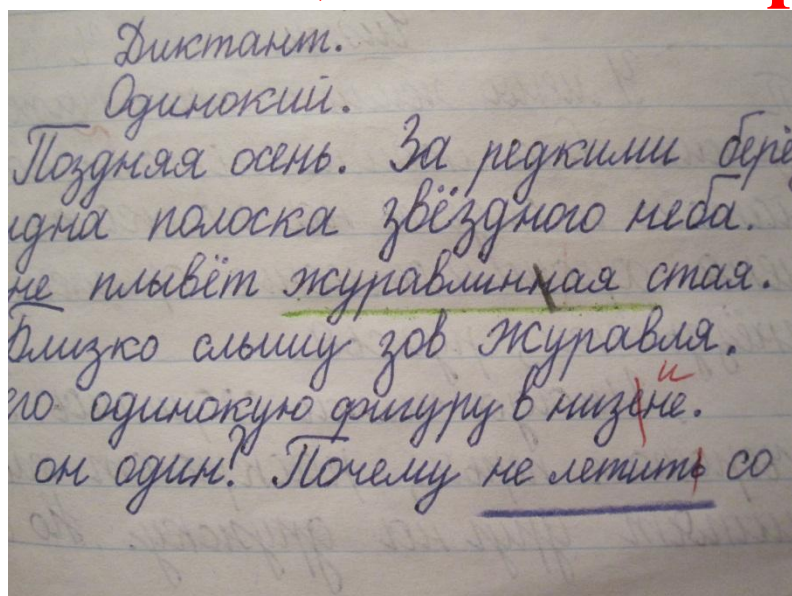 Диктант.
Одинокий.
Поздняя осень. За редкими берё
идна полоска звёздного неба.
не плывёт журавлинная стая.
Близко слышу зов журавля.
его одинокую фигуру в низене.
и
он один? Почему не летить со